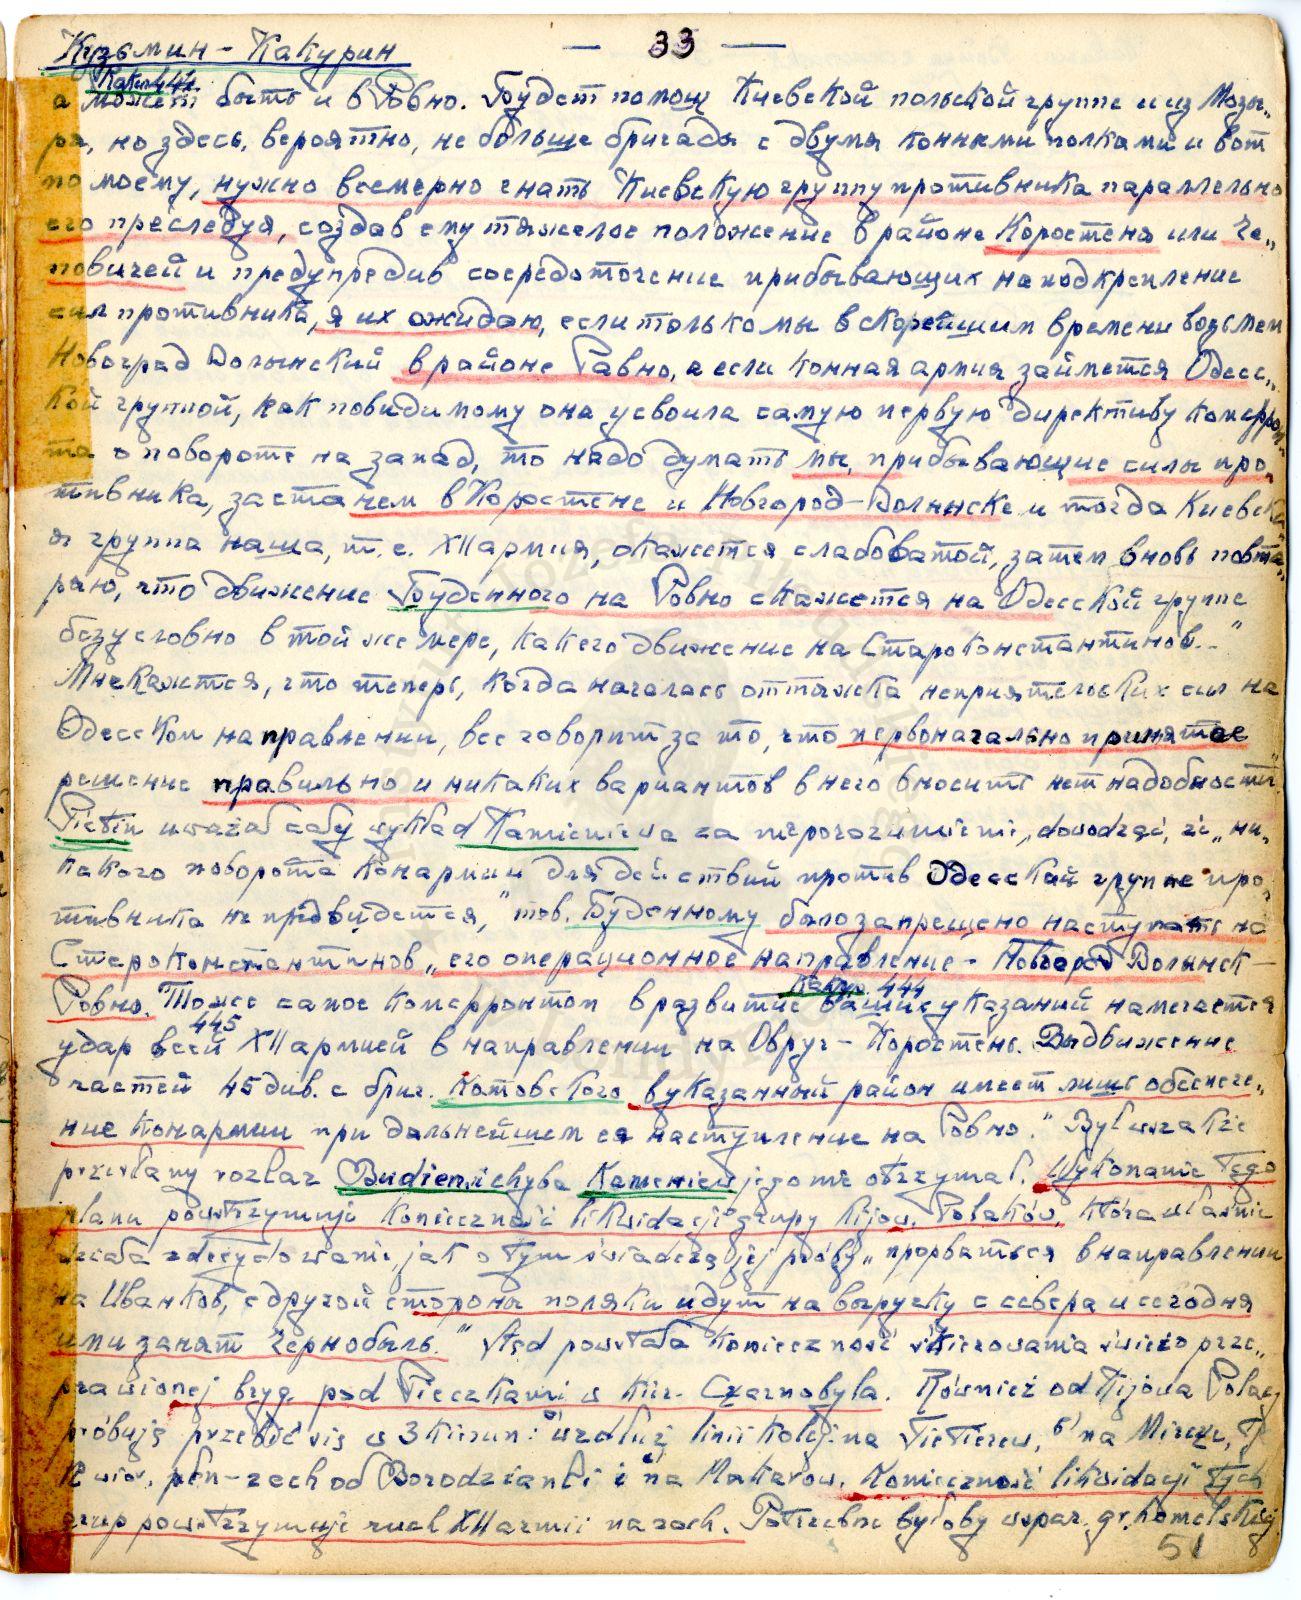 Кузьмин – Какурин — 33 —
Какур 444
а может быть и в Ровно. Будет помощ Киевской польской группе и из Мозы„
ря, но здесь, вероятно, не больше бригады с двумя конными полками и вот
по моему, нужно всемерно гнать Киевскую группу противника параллельно
его преследуя, создав ему тяжелое положение в районе Коростеня или Че„
повичей и предупредив сосредоточение прибывающих на подкрепление
сил противника, я их ожидаю, если только мы в скорейшим времени возьмем
Новоград Волынский в районе Равно, а если конная армия займется Одесс„
кой группой, как повидимому она усвоила самую первую директиву комфрон„
та о повороте на запад, то надо думать мы, прибывающие силы про„
тивника, застанем в Коростене и Новгород–Волынске и тогда Киевска„
я группа наша, т. е. XII армия, окажется слабоватой, затем вновь повта„
ряю, что движение Буденного на Ровно скажется на Одесской группе
безусловно в той же мере, как его движение на Староконстантинов..."
Мне кажется, что теперь, когда началась оттяжка неприятельских сил на
Одесском направлении, все говорит за то, что первоначально принятое
решение правильно и никаких вариантов в него вносить нет надобности."
Pietin uważał cały wykład Kamieniewa za nieporozumienie, dowodząc, że „ни„
какого поворота Конармии для действий против Одесской группе про„
тивника не предвидется," тов. Буденному было запрещено наступать на
Староконстантинов „его операционное направление – Новгород Волынск –
Ровно. Тоже самое комфронтом в развитие ваших указаний намечается
Какур. 444
445
удар всей XII армией в направлении на Овруч – Коростень. Выдвижение
частей 45 див. с бриг. Котовского в указанный район имеет лишь обеспече„
ние Конармии при дальнейшем ея наступление на Ровно." Był wszakże
przesłany rozkaz Budien. i chyba Kamieniew jego nie otrzymał. Wykonanie tego
planu powstrzymuje konieczność likwidacji grupy kijow. Polaków, która właśnie
działa zdecydowanie, jak o tym świadczą jej próby „прорваться в направлении
на Иванков, с другой стороны поляки идут на выручку с севера и сегодня
ими занят Чернобыль." Stąd powstała konieczność skierowania świeżo prze„
prawionej bryg. pod Pieczkami w kier. Czarnobyla. Również od Kijowa Polacy
próbują przebić się w 3 kierun: a/ wzdłuż linii kolej. na Tietierew, b/ na
płn-zach od Borodzianki i c/ na Makarow. Konieczność likwidacji tych
grup powstrzymuje ruch XII armii na zach. Potrzebne byłoby wspar. gr. homelskiej
51